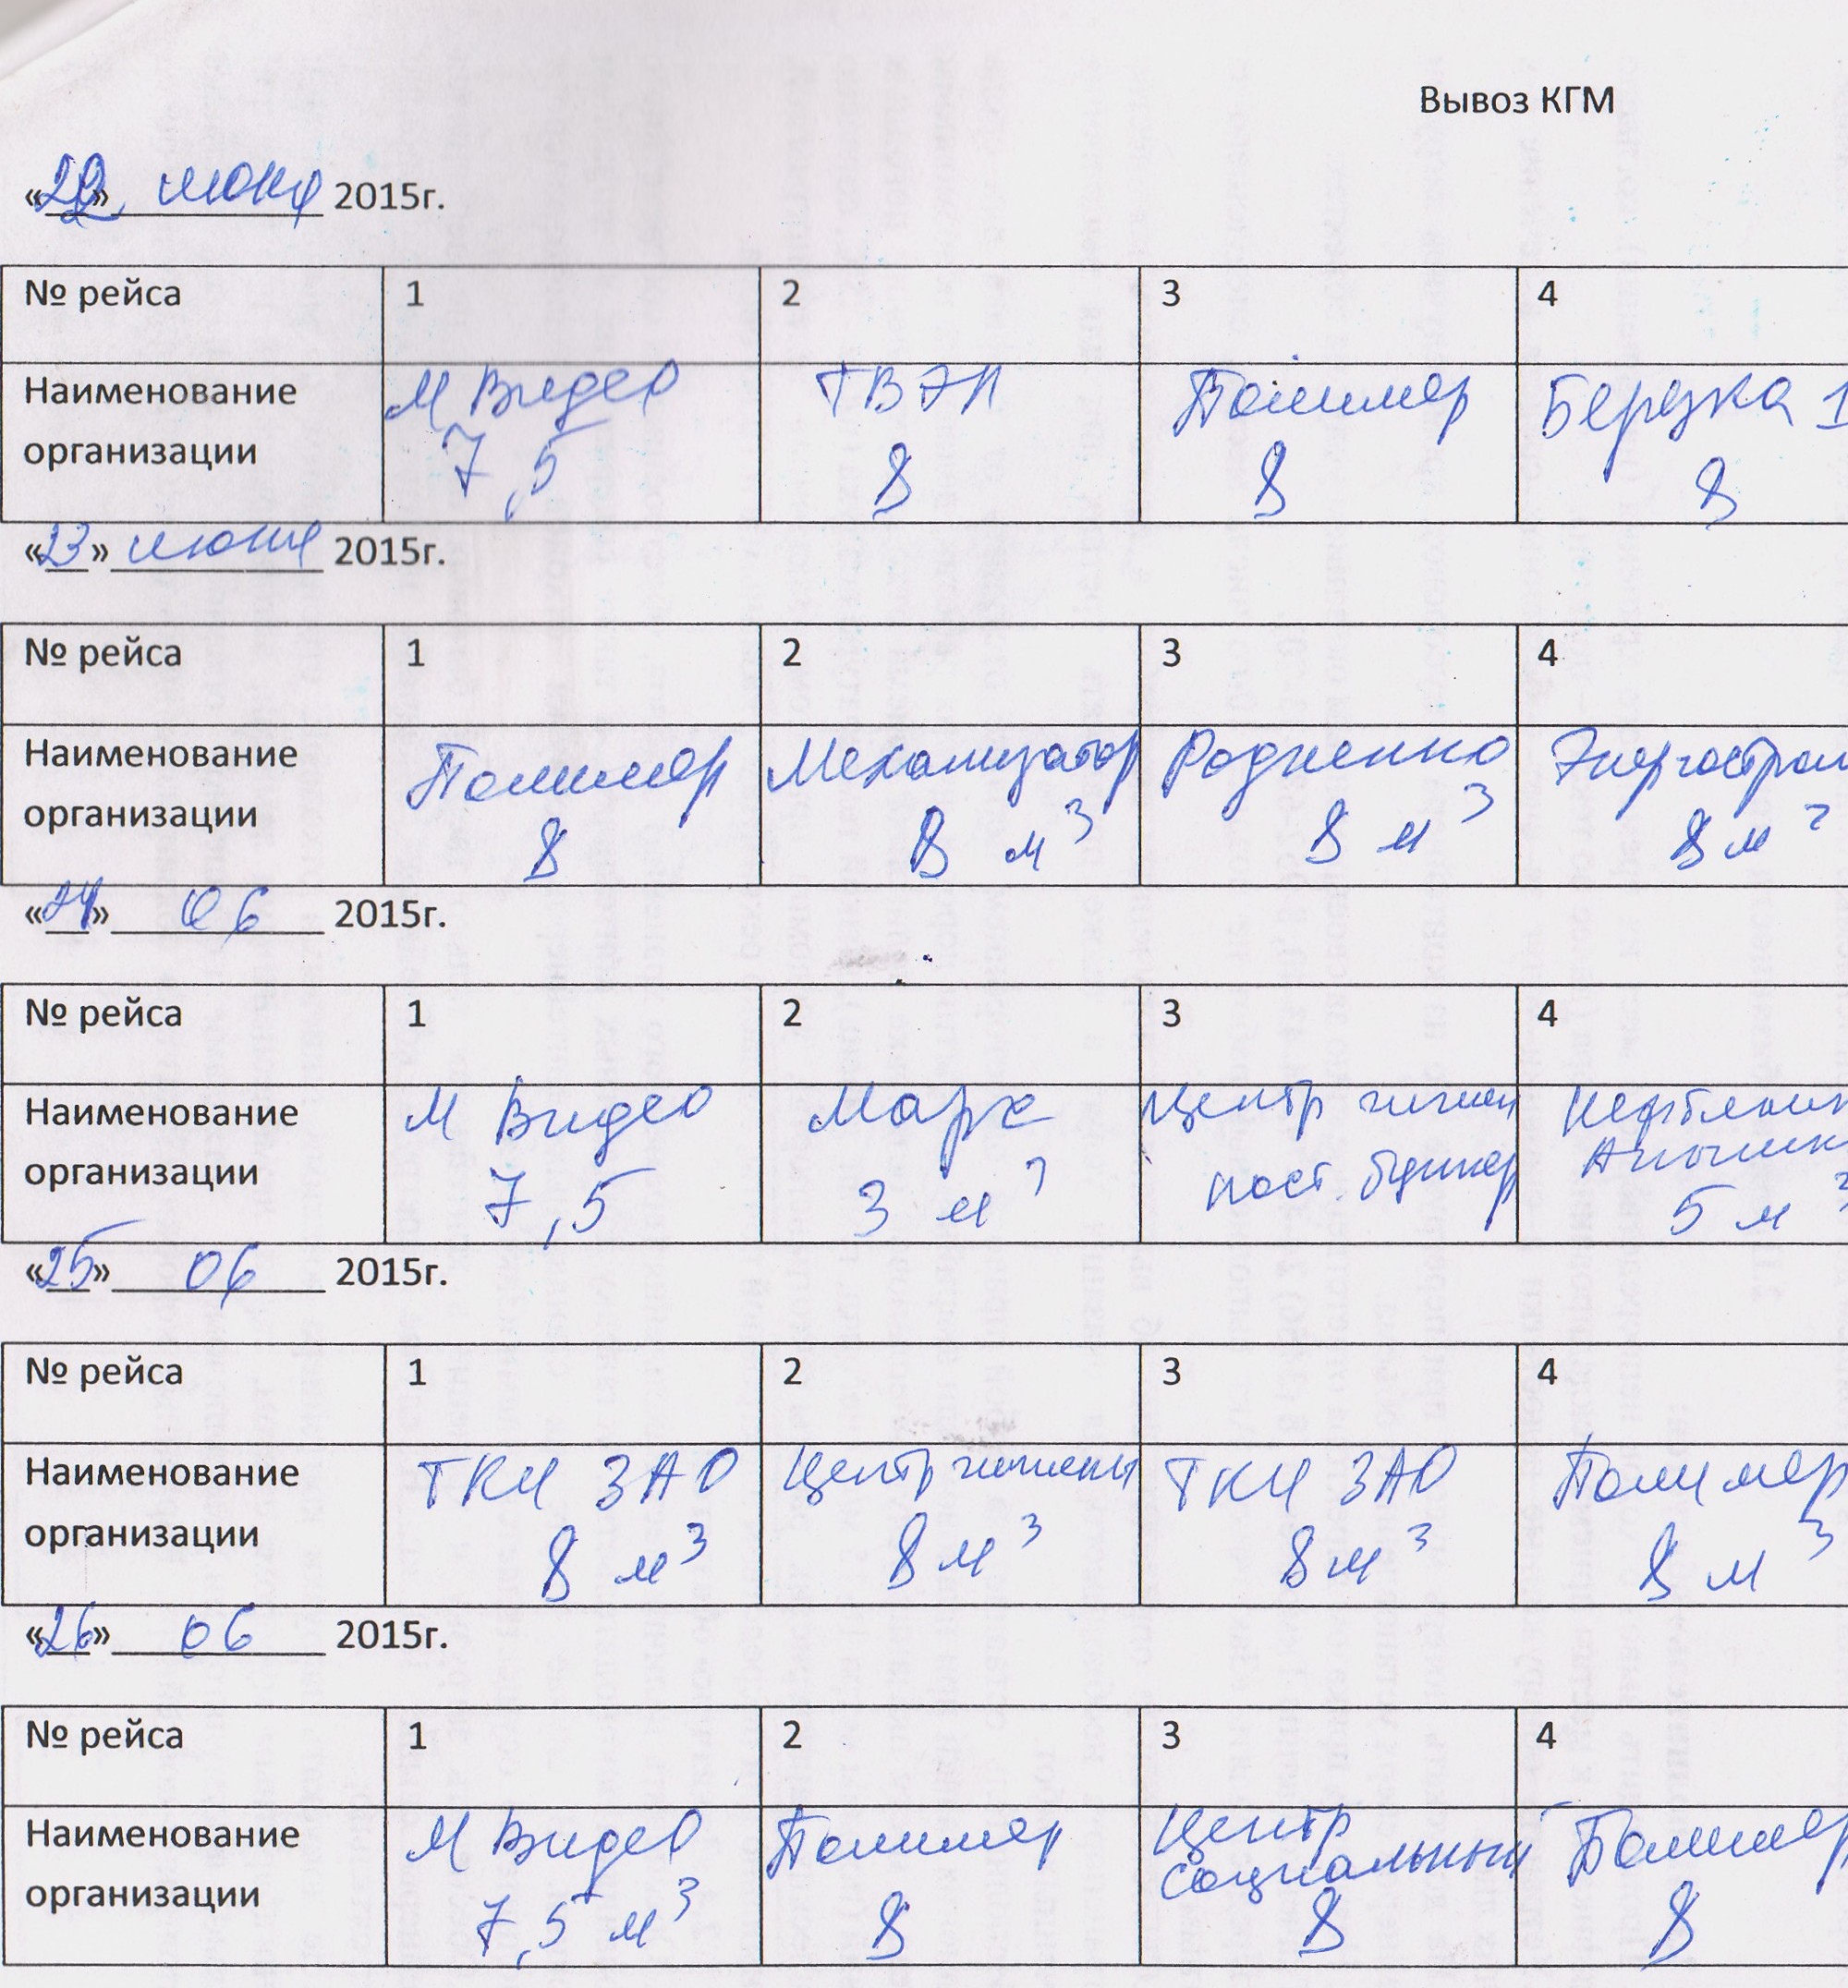 Вывоз КГМ
«22» июня 2015г.
№ рейса 1 2 3 4
Наименование М Видео ТВЭЛ Полимер Березка 1
организации 7,5 8 8 8
«23» июня 2015г.
№ рейса 1 2 3 4
Наименование Полимер Механизатор Родненко Энергостром
организации 8 8 м³ 8 м³ 8 м³
«24» 06 2015г.
№ рейса 1 2 3 4
Наименование М Видео Марс Центр гигиен
организации 7,5 3 м³ пост. бункер 5 м³
«25» 06 2015г.
№ рейса 1 2 3 4
Наименование ТКЦ ЗАО Центр гигиены ТКЦ ЗАО Полимер
организации 8 м³ 8 м³ 8 м³ 8 м³
«26» 06 2015г.
№ рейса 1 2 3 4
Наименование М Видео Полимер Центр Полимер
социальный
организации 7,5 м³ 8 8 8